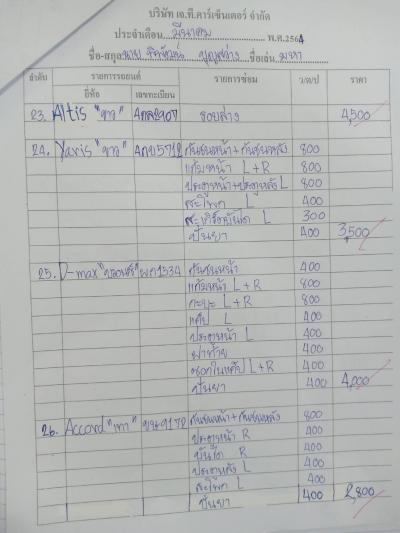 บริษัท เจ.ที.คาร์เซ็นเตอร์ จำกัด
ประจำเดือน มีนาคม พ.ศ.2564
ชื่อ-สกุล นาย บุญสว่าง ชื่อเล่น
ลำดับ รายการรถยนต์ รายการซ่อม ว/ด/ป ราคา
ยี่ห้อ เลขทะเบียน
23. Altis "ขาว" 4กล2907 รอบล่าง 4,500
24. Yaris "ขาว" 4กข5712 กันชนหน้า+กันชนหลัง 800
แก้มหน้า L+R 800
ประตูหน้า+ประตูหลัง L 800
สะโพก L 400
สะเกิร์ตบันได L 300
ปั่นยา 400 3,500
25. D-max "บรอนซ์" ผก1534 กันชนหน้า 400
แก้มหน้า L+R 800
กะบะ L+R 800
แค๊ป L 400
ประตูหน้า L 400
ฝาท้าย 400
ซอกในแค๊ป L+R 400
ปั่นยา 400 4,000
26. Accord "เทา" ขษ9170 กันชนหน้า+กันชนหลัง 800
ประตูหน้า R 400
บันได R 400
ประตูหลัง L 400
สะโพก L 400
ปั่นยา 400 2,800